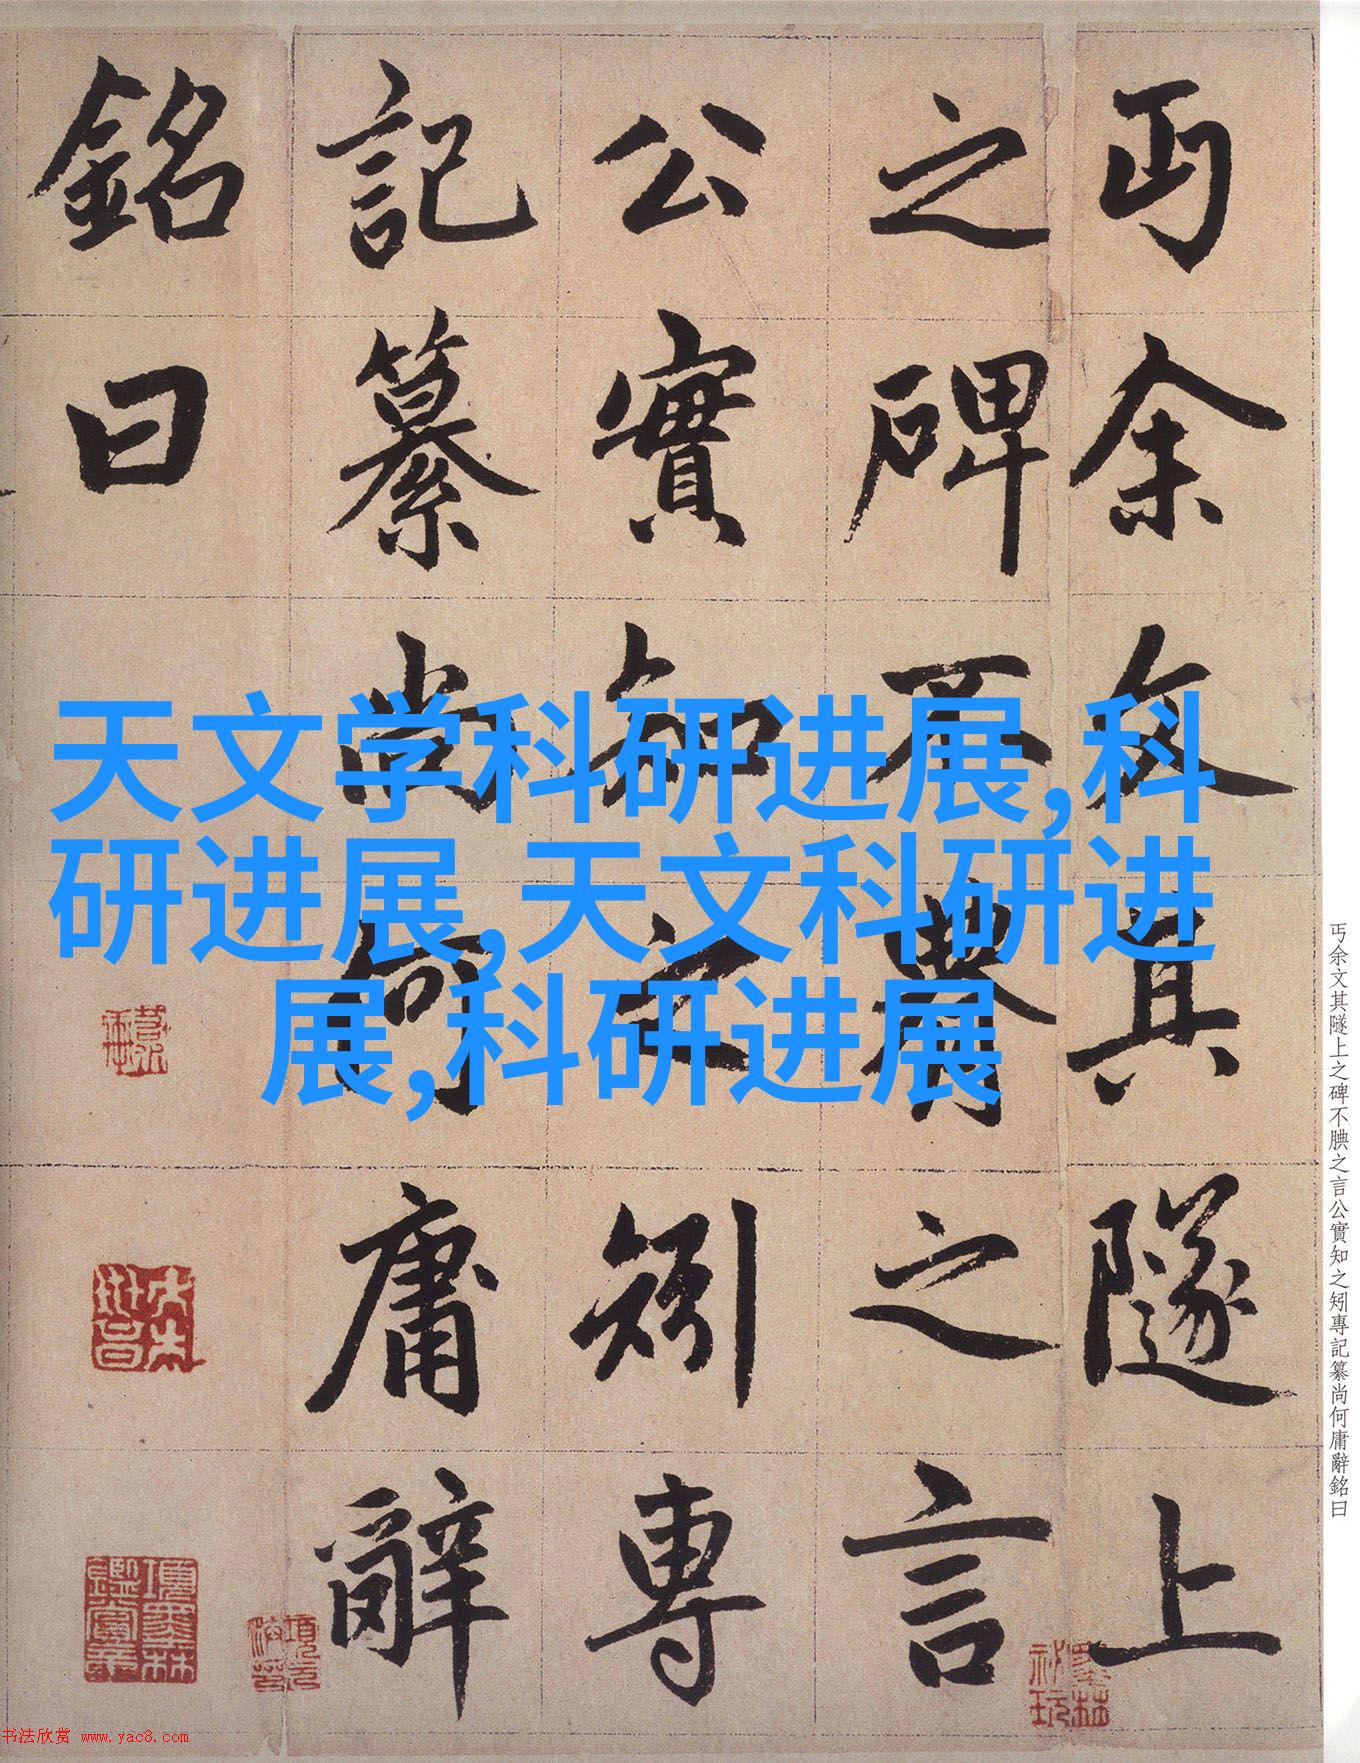 天文学科研进展,科
研进展,天文科研进
展,科研进展
丐余文其隧上
之碑不腆之言
公實知之矧專
記纂尚何庸辭
銘曰
丐余文其隧上之碑不腆之言公實知之矧專記纂尚何庸辭銘曰
項墨林鑑賞章
墨林祕玩
书法欣赏 www.yac8.com